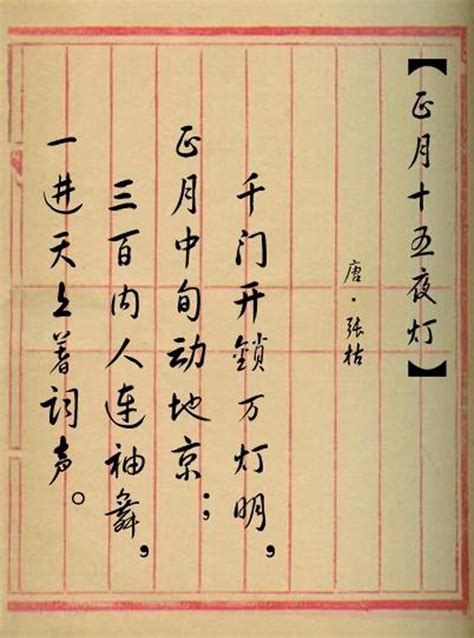 【正月十五夜灯】
唐·张枯
千门开鎖万灯明，
正月中旬动地京；
三百内人连袖舞，
一进天上著词声。